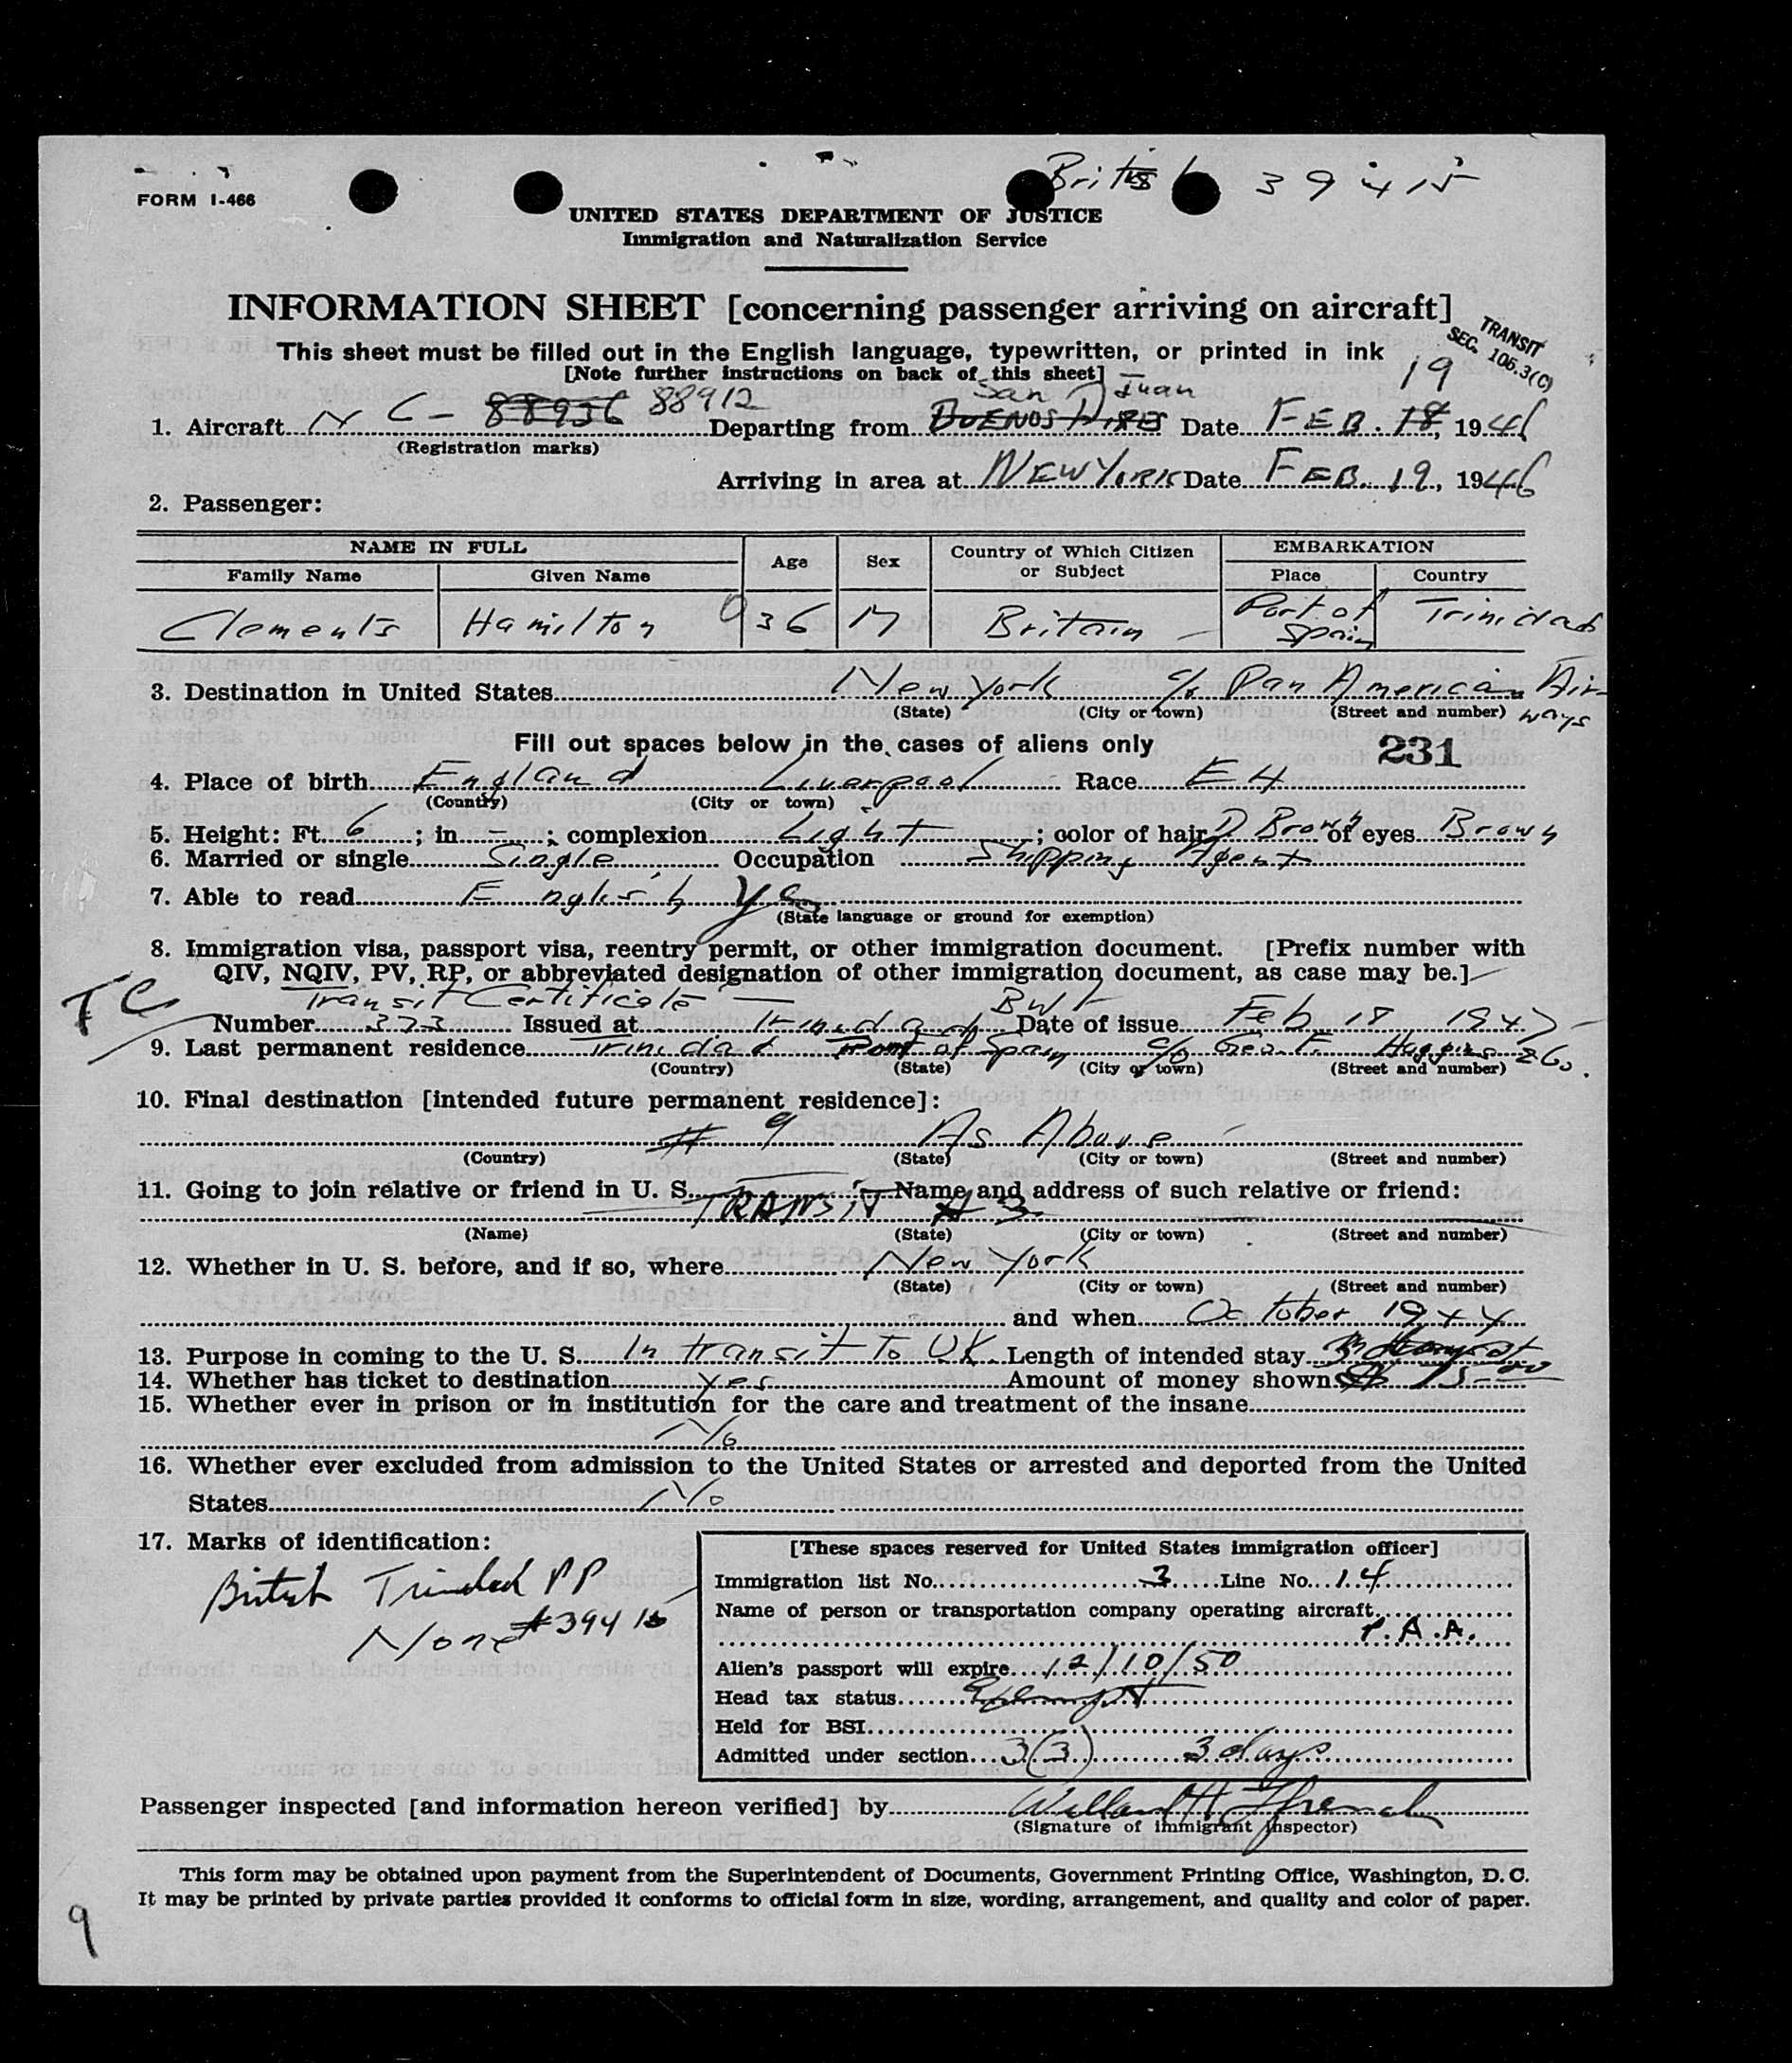 British 39415
FORM I-466
UNITED STATES DEPARTMENT OF JUSTICE
Immigration and Naturalization Service
INFORMATION SHEET [concerning passenger arriving on aircraft]
TRANSIT
SEC. 106.3(C)
This sheet must be filled out in the English language, typewritten, or printed in ink
[Note further instructions on back of this sheet]
San Juan 19
1. Aircraft NC- 88936 88912 Departing from BUENOS AIRES Date FEB. 18, 1946
(Registration marks)
Arriving in area at NEW YORK Date FEB. 19, 1946
2. Passenger:
NAME IN FULL Age Sex Country of Which Citizen or Subject EMBARKATION
Family Name Given Name Place Country
Clements Hamilton 36 M Britain Port of Spain Trinidad
3. Destination in United States New York c/o Pan American Airways
(State) (City or town) (Street and number)
Fill out spaces below in the cases of aliens only 231
4. Place of birth England Liverpool Race
(Country) (City or town)
5. Height: Ft. 6; in. -; complexion Light; color of hair D Brown of eyes Brown
6. Married or single Single Occupation Shipping Agent
7. Able to read English yes
(State language or ground for exemption)
8. Immigration visa, passport visa, reentry permit, or other immigration document. [Prefix number with
QIV, NQIV, PV, RP, or abbreviated designation of other immigration document, as case may be.]
TC Transit Certificate - BWI
Number 323 Issued at Trinidad Date of issue Feb 18 1947
9. Last permanent residence Trinidad Port of Spain c/o Geo. F. Huggins & Co.
(Country) (State) (City or town) (Street and number)
10. Final destination [intended future permanent residence]:
# 9 As Above
(Country) (State) (City or town) (Street and number)
11. Going to join relative or friend in U. S. Name and address of such relative or friend:
TRANSIT # 3
(Name) (State) (City or town) (Street and number)
12. Whether in U. S. before, and if so, where New York
(State) (City or town) (Street and number)
and when October 1944
13. Purpose in coming to the U. S. In transit to UK Length of intended stay
14. Whether has ticket to destination yes Amount of money shown $ 15-00
15. Whether ever in prison or in institution for the care and treatment of the insane
No
16. Whether ever excluded from admission to the United States or arrested and deported from the United
States No
17. Marks of identification:
British Trinidad PP
None #39415
[These spaces reserved for United States immigration officer]
Immigration list No. 3 Line No. 14
Name of person or transportation company operating aircraft
P.A.A.
Alien's passport will expire 12/10/50
Head tax status Exempt
Held for BSI
Admitted under section 3(3) 3 days
Passenger inspected [and information hereon verified] by
(Signature of immigrant inspector)
This form may be obtained upon payment from the Superintendent of Documents, Government Printing Office, Washington, D. C.
It may be printed by private parties provided it conforms to official form in size, wording, arrangement, and quality and color of paper.
9